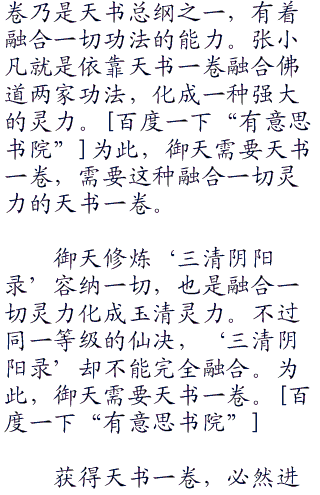 卷乃是天书总纲之一，有着
融合一切功法的能力。张小
凡就是依靠天书一卷融合佛
道两家功法，化成一种强大
的灵力。[百度一下“有意思
书院”]为此，御天需要天书
一卷，需要这种融合一切灵
力的天书一卷。
御天修炼‘三清阴阳
录’容纳一切，也是融合一
切灵力化成玉清灵力。不过
同一等级的仙决，‘三清阴
阳录’却不能完全融合。为
此，御天需要天书一卷。[百
度一下“有意思书院”]
获得天书一卷，必然进